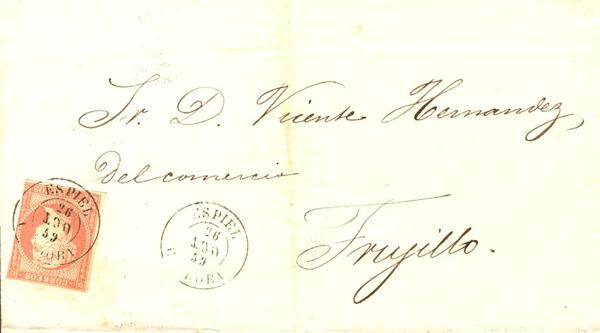 Sr. D. Vicente Hernandez,
Del comercio
Trujillo.
ESPIEL
26
59
CORREOS
ESPIEL
26
59